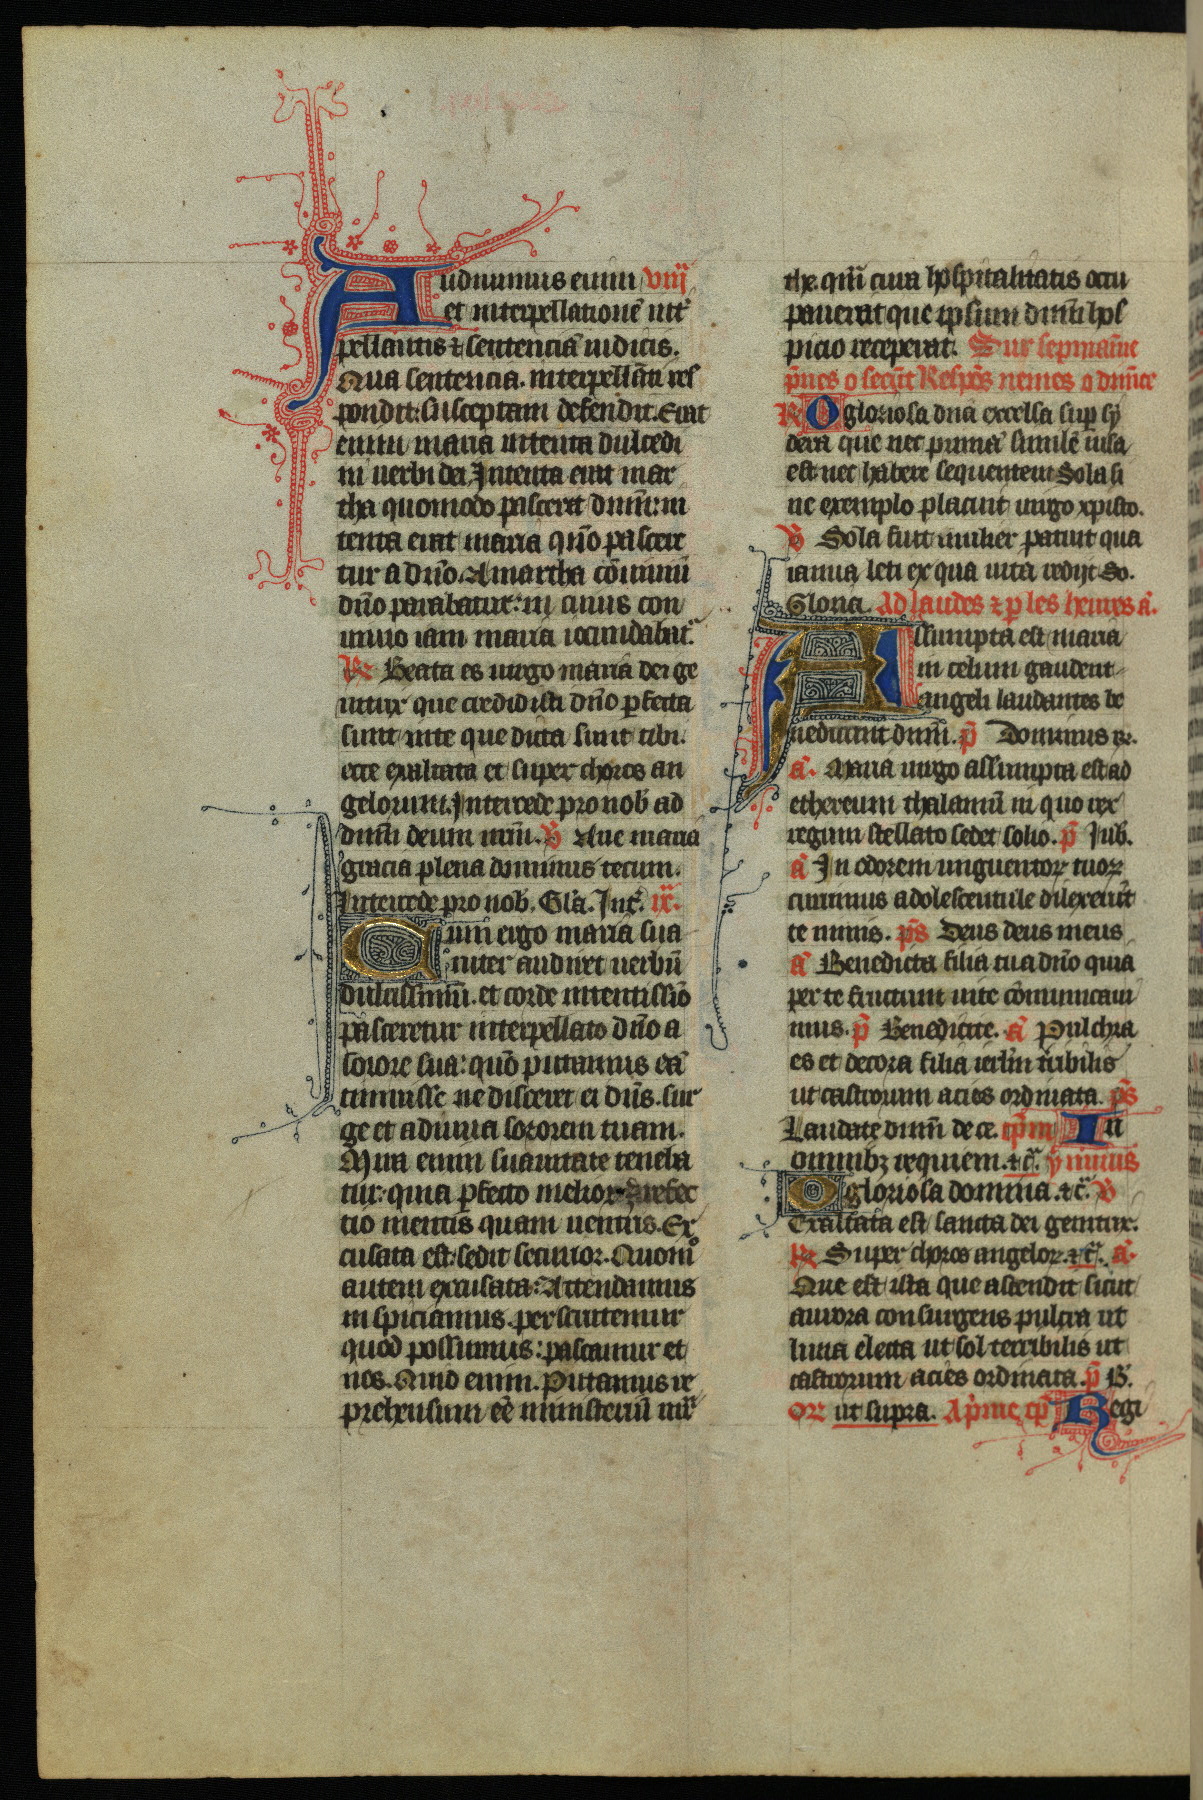 Audiuimus enim viij
et interpellationē int͛
pellantis ⁊ sentenciā iudicis.
Qua sentencia. interpellāti res
pondit: susceptam defendit. Erat
enim maria intenta dulcedi
ni uerbi dei. Intenta erat mar
tha quomodo pasceret dn̄m: in
tenta erat maria qūo pascere
tur a dn̄o. A martha cōuiuiū
dn̄o parabatur: in cuius con
uiuio iam maria iocundabat͛.
R Beata es uirgo maria dei ge
nitrix que credidisti dn̄o ꝑfecta
sunt inte que dicta sunt tibi.
ecce exaltata es super choros an
gelorum. Intercede pro nob̄ ad
dn̄m deum nr̄m. V Aue maria
gracia plena dominus tecum.
Intercede pro nob̄. Gl̄a. Int̄. ix.
Cum ergo maria sua
uiter audiret uerbū
dulcissimū. et corde intentissīo
pasceretur interpellato dn̄o a
sorore sua: quō putamus eā
timuisse ne diceret ei dn̄s. sur
ge et adiuua sororem tuam.
Mira enim suauitate teneba
tur. quia ꝑfecto melior
tio mentis quam uentris. Ex
cusata est: sedit securior. Quomō
autem excusata: Attendamus
inspiciamus. perscrutemur
quod possumus: pascamur et
nos. Quid enim. Putamus re
prehensum eē ministeriū mar
the. quā cura hospitalitatis occu
pauerat que ipsum dn̄m hos
picio receperat. Sur sepmaine
R O gloriosa dn̄a excelsa suꝑ sy
dera que nec primā similē uisa
est nec habere sequentem Sola si
ne exemplo placuit uirgo xpisto.
V Sola fuit mulier patuit qua
ianua leti ex qua uita redijt So.
Gloria. Ad laudes ⁊ p les heures a͞.
Assumpta est maria
in celum gaudent
angeli laudantes be
nedicunt dn̄m. p̄ Dominus re.
a͞. Maria uirgo assumpta est ad
ethereum thalamū in quo rex
regum stellato sedet solio. p̄ Jub̄.
a͞ In odorem unguentoꝝ tuoꝝ
currimus adolescentule dilexerūt
te nimis. p̄s Deus deus meus
a͞ Benedicta filia tua dn̄o quia
per te fructum uite cōmunicaui
mus. p̄ Benedicite. a͞ Pulchra
es et decora filia ierl̄m t̄ribilis
ut castrorum acies ordinata. p̄s
Laudate dn̄m de ce. cp̄m In
omnibꝫ requiem. ⁊c͛. ȳmnus
O gloriosa domina. ⁊c͛. V
Exaltata est sancta dei genitrix.
R Super choros angeloꝝ. ⁊c͛. a͞.
Que est ista que ascendit sicut
aurora consurgens pulcra ut
luna electa ut sol terribilis ut
castrorum acies ordinata. p̄ B̄.
Or ut supra. A p̄me cp̄ Regi